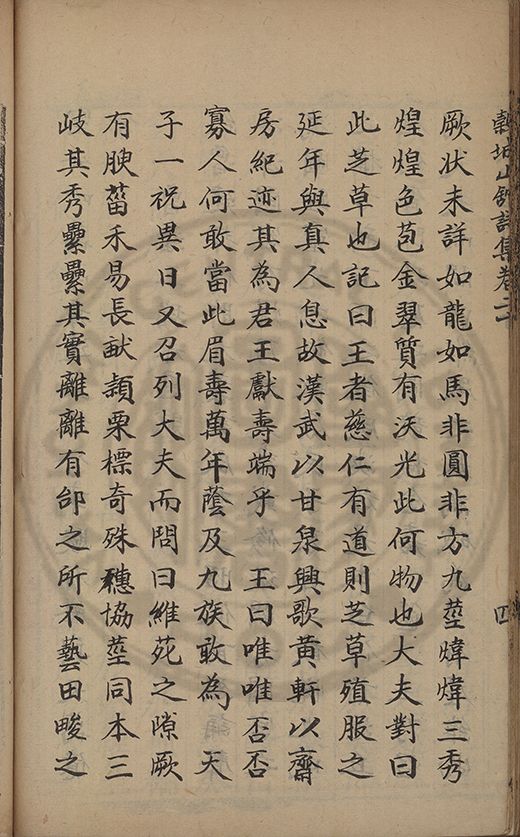 山館詩集卷二
四
厥状未詳如龍如馬非圓非方九莖煒煒三秀
煌煌色苞金翠質有沃光此何物也大夫對曰
此芝草也記曰王者慈仁有道則芝草殖服之
延年與真人息故漢武以甘泉興歌黄軒以齋
房紀迹其為君王獻壽端乎王曰唯唯否否
寡人何敢當此眉壽萬年蔭及九族敢為天
子一祝異日又召列大夫而問曰維苑之隙厥
有腴菑禾易長畝頴栗標奇殊穗協莖同本三
岐其秀纍纍其實離離有邰之所不藝田畯之